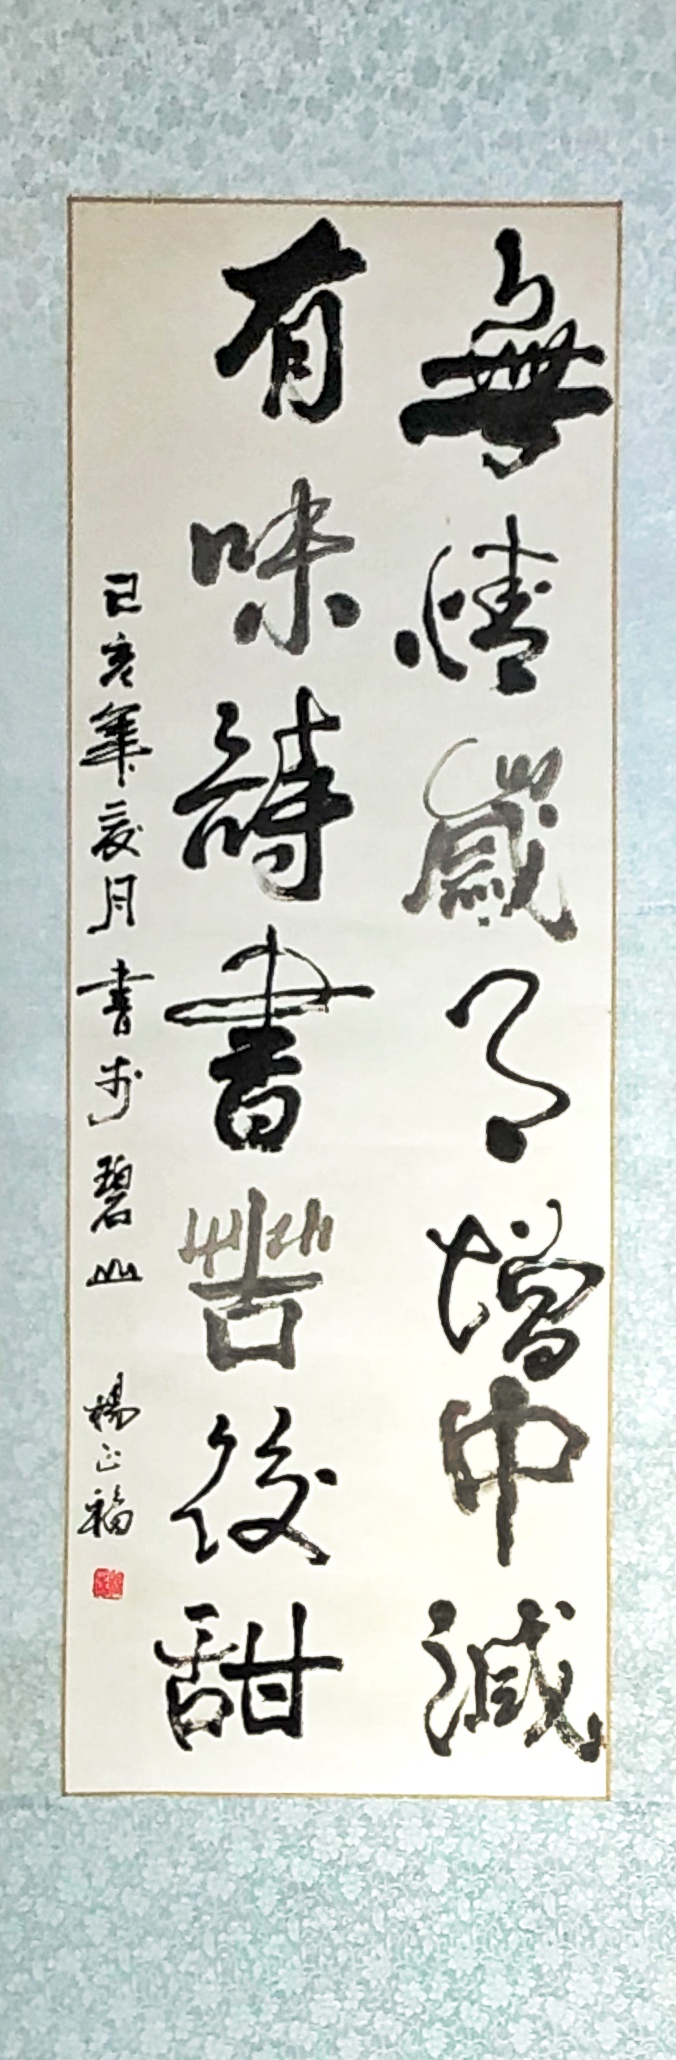 無情歲月增中減
有味詩書苦後甜
己亥年亥月書於碧山 楊正福